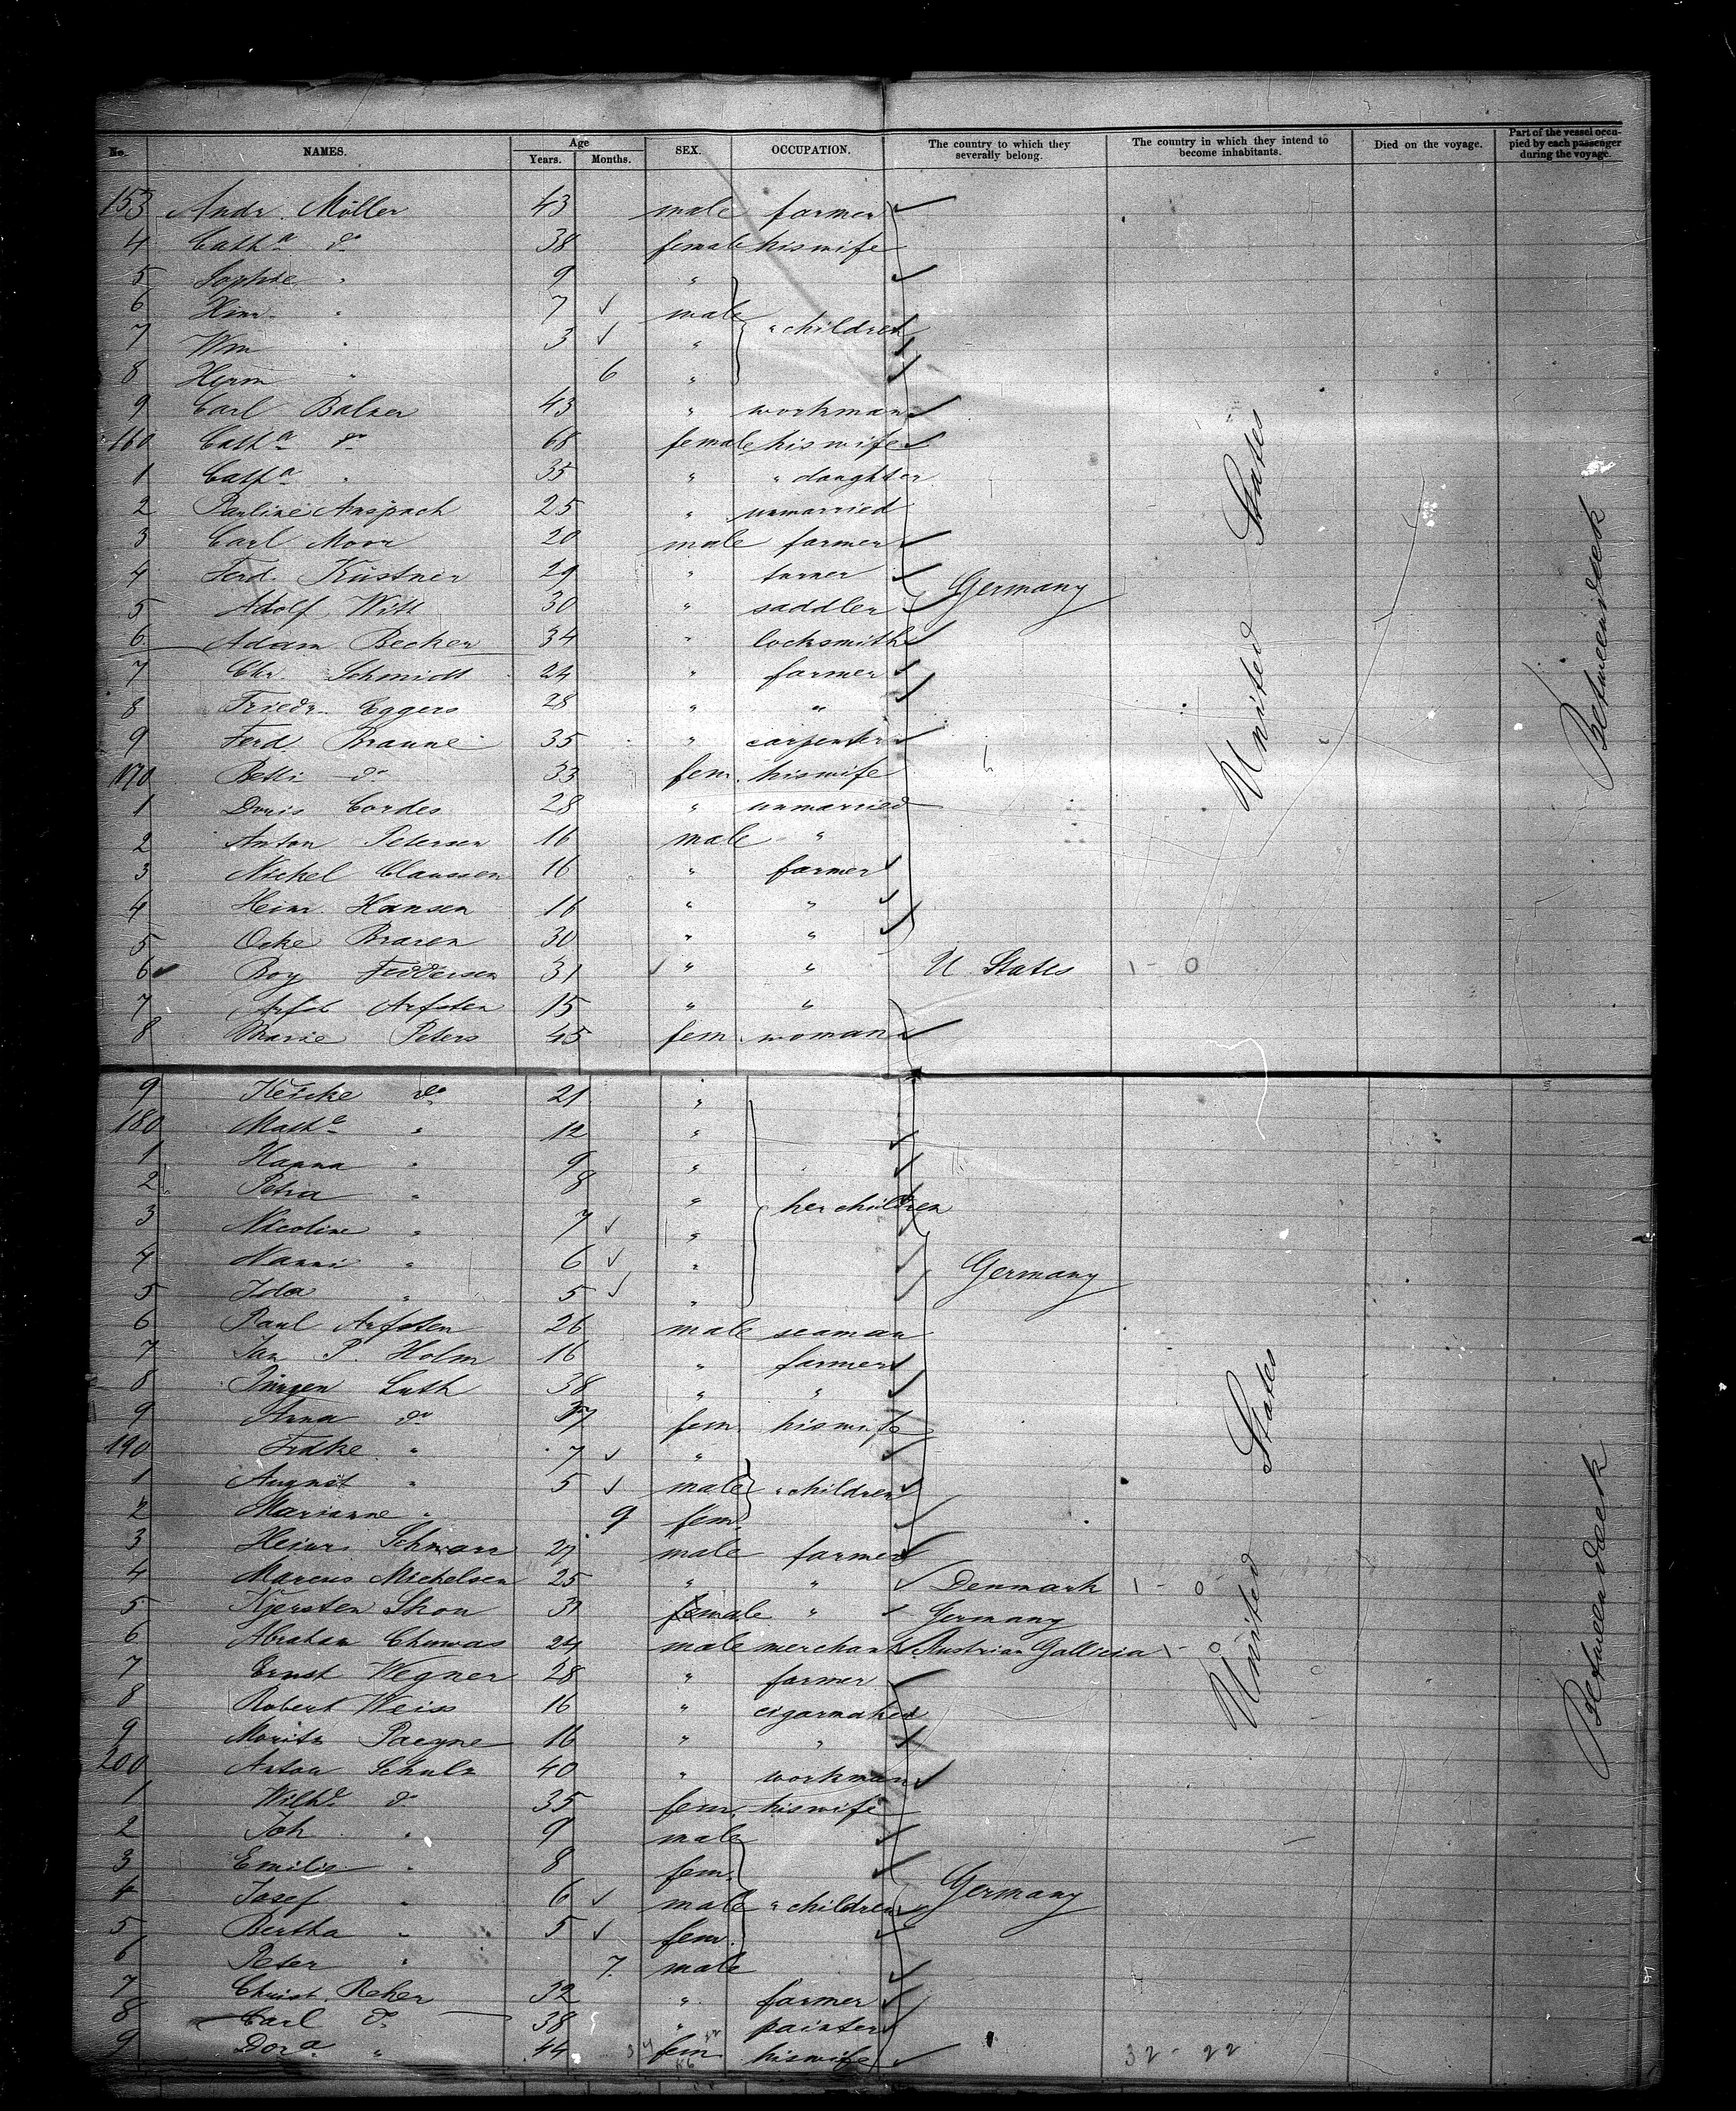 No. NAMES. Age Years. Months. SEX. OCCUPATION. The country to which they severally belong. The country in which they intend to become inhabitants. Died on the voyage. Part of the vessel occupied by each passenger during the voyage.
153 Andr. Möller 43 male farmer
4 Cath.a do 38 female his wife
5 Sophie " 9 "
6 Hinr. " 7 male
7 Wm " 3 " " children
8 Herm " 6 "
9 Carl Balzer 43 " workman
160 Cath.a do 68 female his wife
1 Cath.a " 35 " " daughter
2 Pauline Anspach 25 " unmarried
3 Carl Moor 20 male farmer
4 Ferd. Küstner 29 " turner Germany
5 Adolf Witt 30 " saddler
6 Adam Becker 34 " locksmith
7 Chr. Schmidt 24 " farmer
8 Friedr. Eggers 28 " "
9 Ferd. Braune 35 " carpenter
170 Betti do 33 fem. his wife
1 Doris Cordes 28 " unmarried
2 Anton Petersen 16 male "
3 Nickel Claussen 16 " farmer
4 Heinr. Hansen 16 " "
5 Ocke Braren 30 " "
6 Boy Feddersen 31 " " U. States 1 - 0
7 Arfst Arfsten 15 " "
8 Marie Peters 45 fem. woman
United States
Betweendeck
9 Keike do 21 "
180 Math.e " 12 "
1 Hanna " 9 "
2 Petra " 8 "
3 Nicoline " 7 " her children
4 Nanni " 6 " Germany
5 Ida " 5 "
6 Paul Arfsten 26 male seaman
7 Jan P. Holm 16 " farmer
8 Jürgen Luth 38 " "
9 Anna do 37 fem. his wife
190 Frake " 7 "
1 August " 5 male " children
2 Marianne " 9 fem.
3 Heinr. Schmarr 27 male farmer
4 Marcus Michelsen 25 " " Denmark 1 - 0
5 Kjersten Skou 31 female " Germany
6 Abraham Chuwas 24 male merchant Austrian Gallicia 1 - 0
7 Ernst Wegner 28 " farmer
8 Robert Weiss 16 " cigarmaker
9 Moritz Paegne 16 " "
200 Anton Schulz 40 " workman
1 Wilh.e do 35 fem. his wife
2 Joh. " 9 male
3 Emilie " 8 fem. Germany
4 Josef " 6 male " children
5 Bertha " 5 fem.
6 Peter " 7. male
7 Christ. Reher 32 " farmer
8 Carl do 38 " painter
9 Dor.a " 44 fem. his wife 32 - 22
United States
Betweendeck